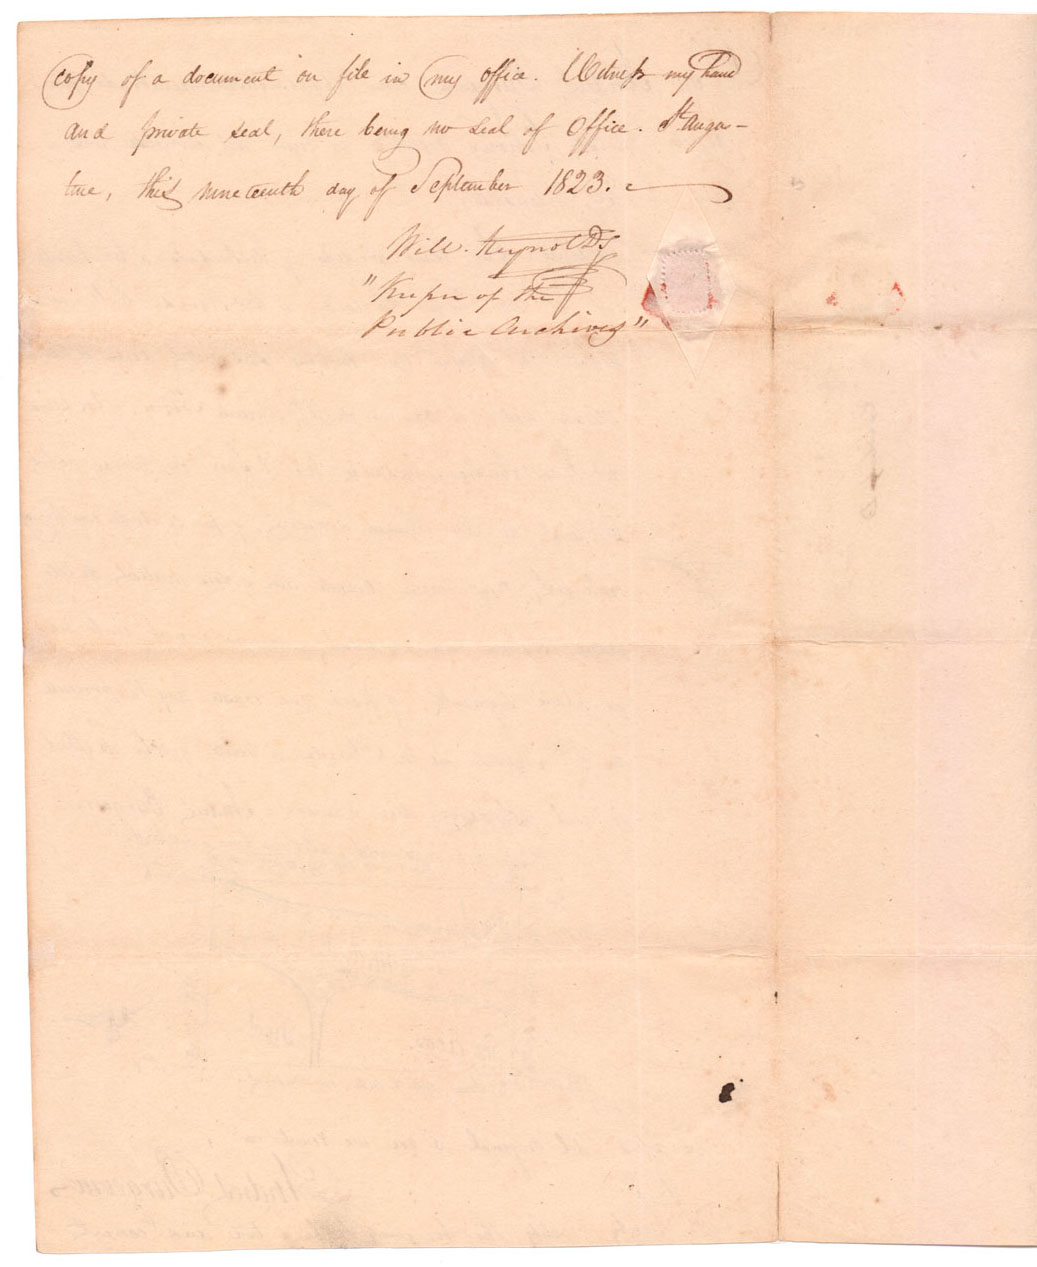 copy of a document on file in my office. Witness my hand
and private seal, there being no seal of Office. St. Augus-
tine, this nineteenth day of September 1823.
Will. Reynolds
"Keeper of the
Public Archives"